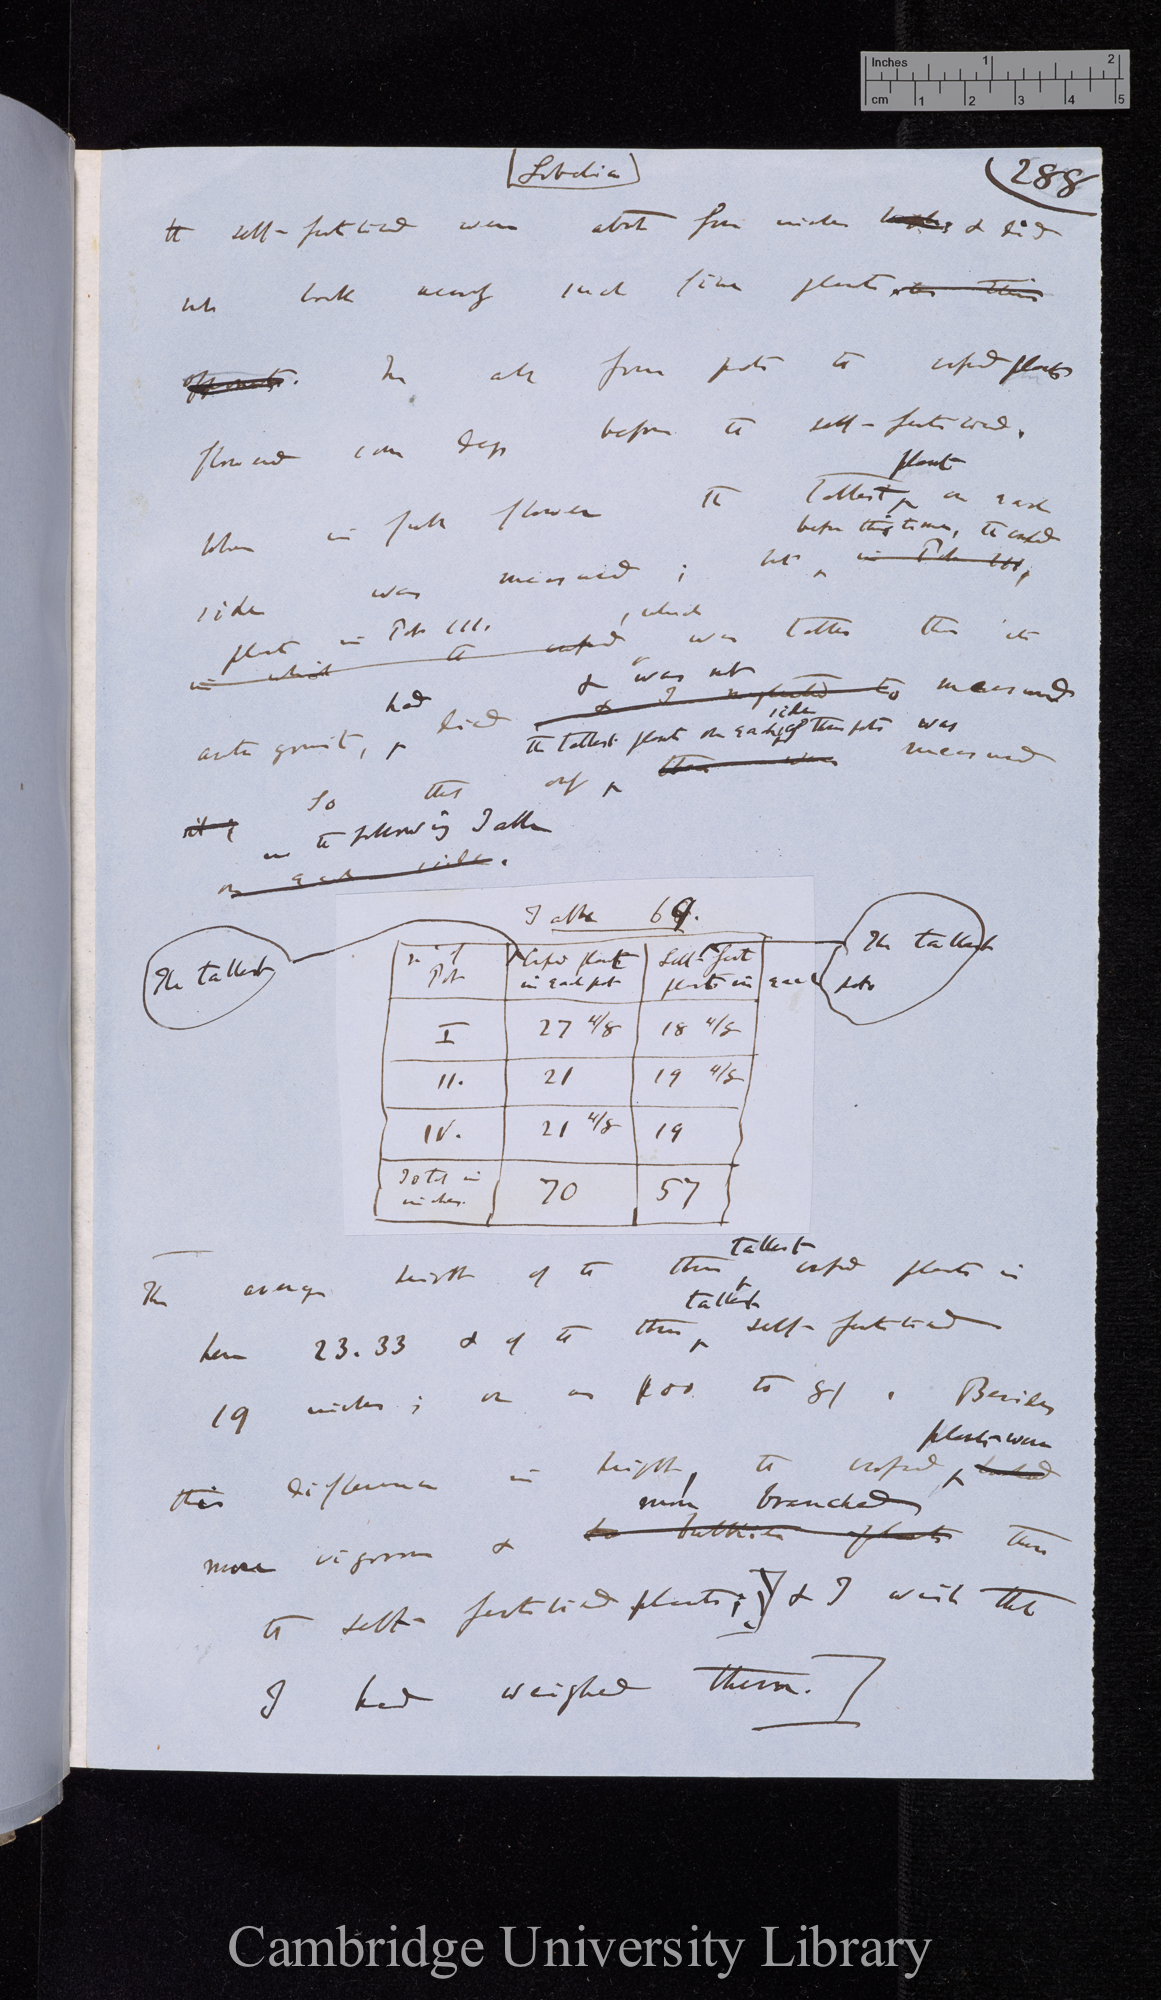 Inches 1 2
cm 1 2 3 4 5
Lobelia
288
the self-fertilised were about four inches & did
not look nearly such fine plants as their
opponents. In all four pots the crossed plants
flowered some days before the self-fertilised.
plant
When in full flower the tallest on each
before this time, the crossed
side was measured; but in Pot III,
plant in Pot III. , which
in which the crossed was taller than its
had & was not
antagonist, died & I neglected to measured
the tallest plant on each side of three pots was
it; So that only there were measured
in the following Table
on each side.
Table 69.
The tallest
The tallest
No. of Pot
Crossed plants in each pot
Self-Fert plants in each pot
I 27 4/8 18 4/8
II. 21 19 4/8
IV. 21 4/8 19
Total in inches. 70 57
tallest
The average height of the three crossed plants is
tallest
here 23.33 & of the three self-fertilised
19 inches; or as 100 to 81. Besides
plants were
this difference in height, the crossed looked
more branched
more vigorous & than
the self-fertilised plants; & I wish that
I had weighed them.
Cambridge University Library